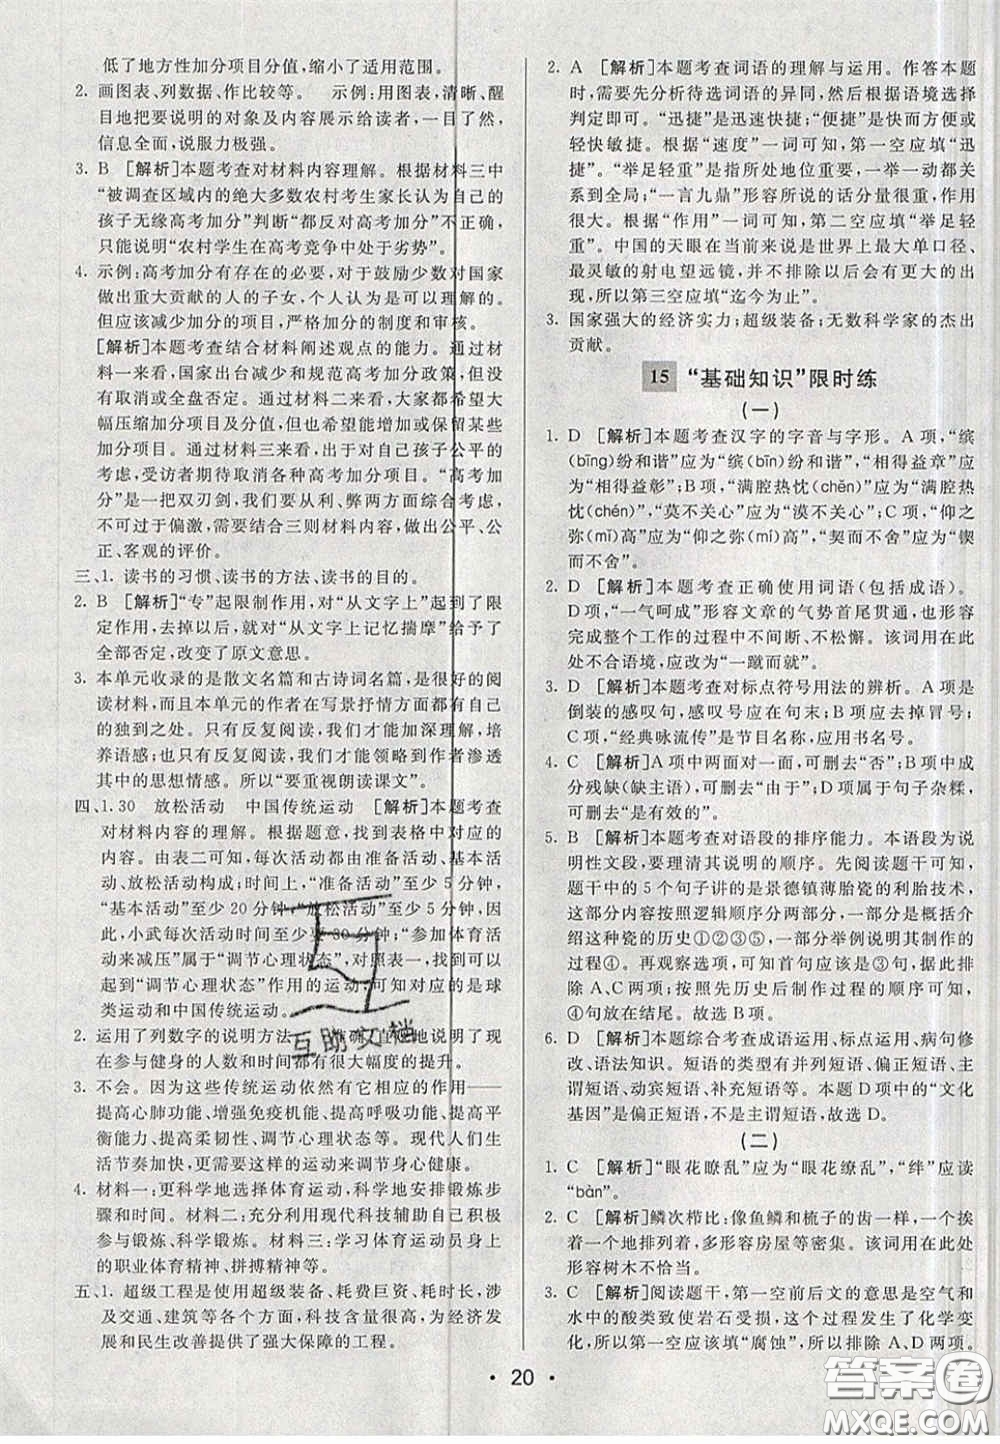 低了地方性加分项目分值,缩小了适用范围。
2. 画图表、列数据、作比较等。 示例:用图表,清晰、醒
目地把要说明的对象及内容展示给读者,一目了然,
信息全面,说服力极强。
3. B [解析]本题考查对材料内容理解。根据材料三中
“被调查区域内的绝大多数农村考生家长认为自己的
孩子无缘高考加分”判断“都反对高考加分”不正确,
只能说明“农村学生在高考竞争中处于劣势”。
4. 示例:高考加分有存在的必要,对于鼓励少数对国家
做出重大贡献的人的子女,我个人认为是可以理解的。
但应该减少加分的项目,严格加分的制度和审核。
[解析]本题考查结合材料阐述观点的能力。通过材
料一来看,国家出台减少和规范高考加分政策,但没有
废除或全盘否定。通过材料二来看,大家都希望大
幅压缩加分项目及分值,但也希望增加或保留某些
加分项目。通过材料三来看,出于对自己孩子公平的
考虑,受访者期待取消各种高考加分项目。“高考加
分”是一把双刃剑,我们要从利、弊两方面综合考虑,
不可过于偏激,需要结合三则材料内容,做出公平、公
正、客观的评价。
三、1. 读书的习惯、读书的方法、读书的目的。
2. B [解析]“专”起限制作用,对“从文字上”起到了限
定作用,去掉以后,就对“从文字上记忆揣摩”给予了
全部否定,改变了原文意思。
3. 本单元收录的是散文名篇和古诗词名篇,是很好的阅
读材料,而且本单元的作者在写景抒情方面都有自己
的独到之处。只有反复阅读,我们才能加深理解,培
养语感;也只有反复阅读,我们才能领略到作者渗透
其中的思想情感。所以“要重视朗读课文”。
四、1. 30 放松活动 中国传统运动 [解析]本题考查
对材料内容的理解。根据题意,找到表格中对应的
内容。由表二可知,每次活动都由准备活动、基本活
动、放松活动构成;时间上,“准备活动”至少5分钟,
“基本活动”至少20分钟,“放松活动”至少5分钟,因
此,小武每次活动时间至少要30分钟;“参加体育活
动来减压”属于“调节心理状态”,对照表一,找到可以
起到“调节心理状态”作用的运动;可知对应的是球
类运动和中国传统运动。
2. 运用了列数字的说明方法。准确、直观地说明了现
在参与健身的人数和时间都有很大幅度的提升。
3. 不会。因为这些传统运动依然有它相应的作用——
提高心肺功能、增强免疫机能、提高呼吸功能、提高平
衡能力、提高柔韧性、调节心理状态等。现代人们生
活节奏加快,更需要这样的运动来调节身心健康。
4. 材料一:更科学地选择体育运动,科学地安排锻炼步
骤。材料二:充分利用现代科技辅助自己,积极参与
科学锻炼。材料三:学习体育运动员身上
的职业体育精神、拼搏精神等。
五、1. 超级工程是使用超级装备、耗费巨资、耗时长,涉
及交通、建筑等各个方面,科技含量很高,为经济发
展和民生改善提供了强大保障的工程。
2. A [解析]本题考查词语的理解与运用。作答本题
时,需要先分析待选词语的异同,然后根据语境选择
判定即可。“迅捷”是迅速快捷的意思;“便捷”是快
而方便。根据“速度”一词可知,第一空应填“迅
捷”。“举足轻重”是指所处地位重要,一举一动都
关系到全局;“一言九鼎”形容所说的话分量很重,作用
很大。根据“作用”一词可知,第二空应填“举足轻
重”。中国的天眼在当前来说是世界上最大单口径、
最灵敏的射电望远镜,并不排除以后会有更大的,
所以第三空应填“迄今为止”。
3. 国家强大的经济实力;超级装备;无数科学家的杰出
贡献。
15 “基础知识”限时练
(一)
1. D [解析]本题考查汉字的字音与字形。A项,“缤
(bīng)纷和谐”应为“缤(bīn)纷和谐”,“相得益章”应
为“相得益彰”;B项,“满腔热忱(chěn)”应为“满腔热
忱(chén)”,“莫不关心”应为“漠不关心”;C项,“仰之
弥(mǐ)高”应为“仰之弥(mí)高”,“契而不舍”应为“锲
而不舍”。
2. D [解析]本题考查正确使用词语(包括成语)。
D项,“一气呵成”形容文章的气势首尾贯通,也形容
完成整个工作的过程中不间断、不松懈。该词用在此
处不合语境,应改为“一蹴而就”。
3. D [解析]本题考查对标点符号用法的辨析。A项是
倒装的感叹句,感叹号应在句末;B项应去掉冒号;
C项,“经典咏流传”是节目名称,应用书名号。
4. C [解析]A项中两面对一面,可删去“否”;B项中
成分残缺(缺主语),可删去“由于”;D项属于句子杂糅,
可删去“是有效的”。
5. B [解析]本题考查对语段的排序能力。本语段为说
明性文段,要理清其说明的顺序。先阅读题干可知,
题干中的5个句子讲的是景德镇薄胎瓷的利胎技术,
这部分内容按照逻辑顺序分两部分,一部分是概括介
绍这种瓷的历史①②③⑤,一部分举例说明其制作的
过程④。再观察选项,可知首句应为③句,据此可排
除A、C两项。按照先历史后制作过程的顺序,可知
④句放在结尾。故选B项。
6. D [解析]本题综合考查成语运用、标点运用、病句修
改、语法知识。短语的类型有并列短语、偏正短语、主
谓短语、动宾短语、补充短语等。本题D项中的“文化
基因”是偏正短语,不是主谓短语,故选D。
(二)
1. C [解析]“眼花瞭乱”应为“眼花缭乱”,“绊”应读
“bàn”。
2. C [解析]鳞次栉比:像鱼鳞和梳子的齿一样,一个挨
着一个地排列着,多形容房屋等密集。该词用在此处
形容树木不恰当。
3. C [解析]阅读题干,第一空前后文的意思是空气和
水中的酸类物质使岩石受损,这个过程发生了化学变
化,所以第一空应该填“腐蚀”,所以排除A、D两项。
· 20 ·
互助文档
答案卷
MXQE.COM